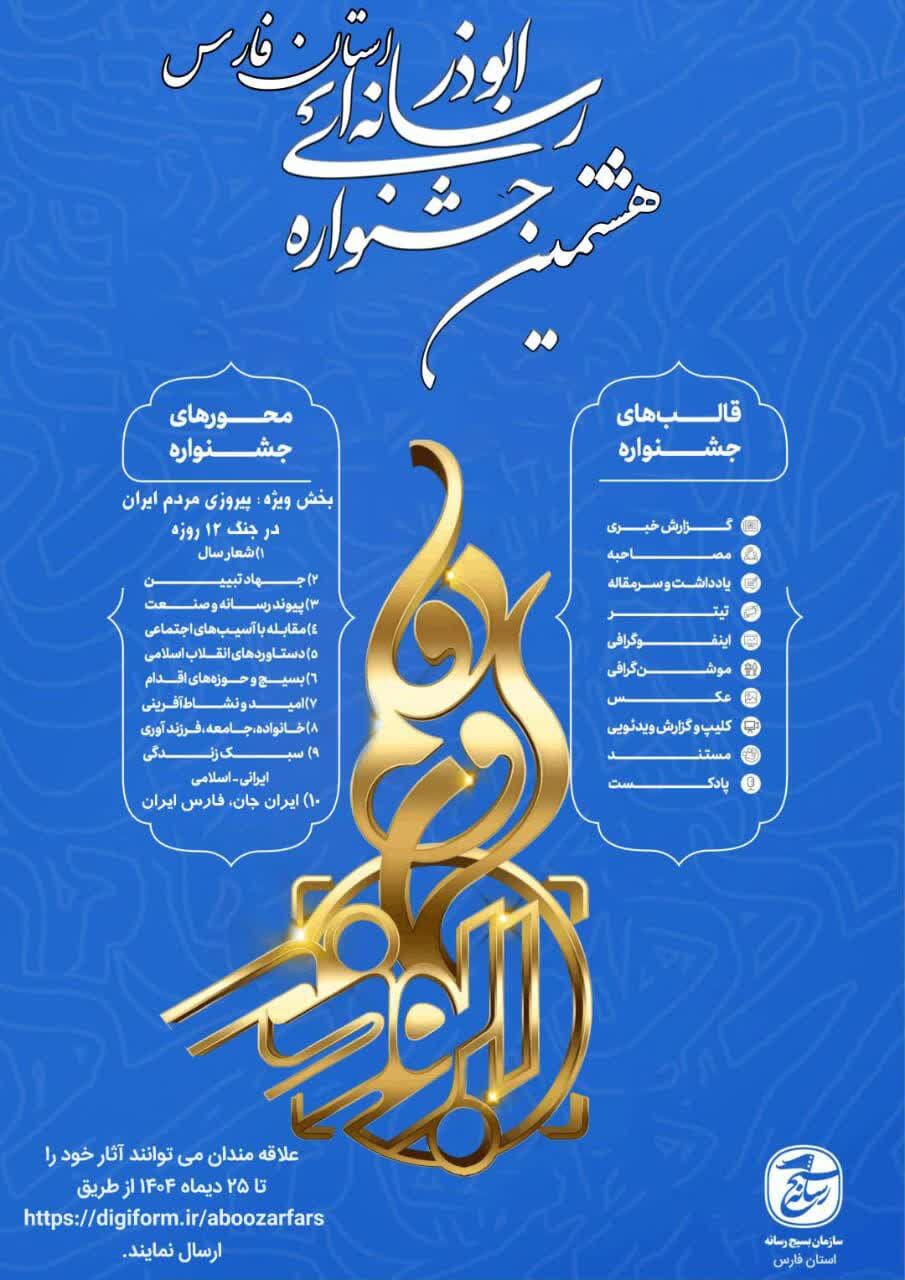 هشتمین جشنواره
رسانه‌ای ابوذر
استان فارس
قالب‌های
جشنواره
گزارش خبری
مصاحبه
یادداشت و سرمقاله
تیتر
اینفوگرافی
موشن‌گرافی
عکس
کلیپ و گزارش ویدئویی
مستند
پادکست
محورهای
جشنواره
بخش ویژه : پیروزی مردم ایران
در جنگ ۱۲ روزه
۱) شعار سال
۲) جهاد تبیین
۳) پیوند رسانه و صنعت
٤) مقابله با آسیب‌های اجتماعی
۵) دستاوردهای انقلاب اسلامی
٦) بسیج و حوزه‌های اقدام
۷) امید و نشاط‌آفرینی
۸) خانواده، جامعه، فرزندآوری
۹) سبک زندگی
ایرانی-اسلامی
۱۰) ایران جان، فارس ایران
علاقه مندان می توانند آثار خود را
تا ۲۵ دیماه ۱۴۰۴ از طریق
https://digiform.ir/aboozarfars
ارسال نمایند.
بسیج
رسانه
سازمان بسیج رسانه
استان فارس